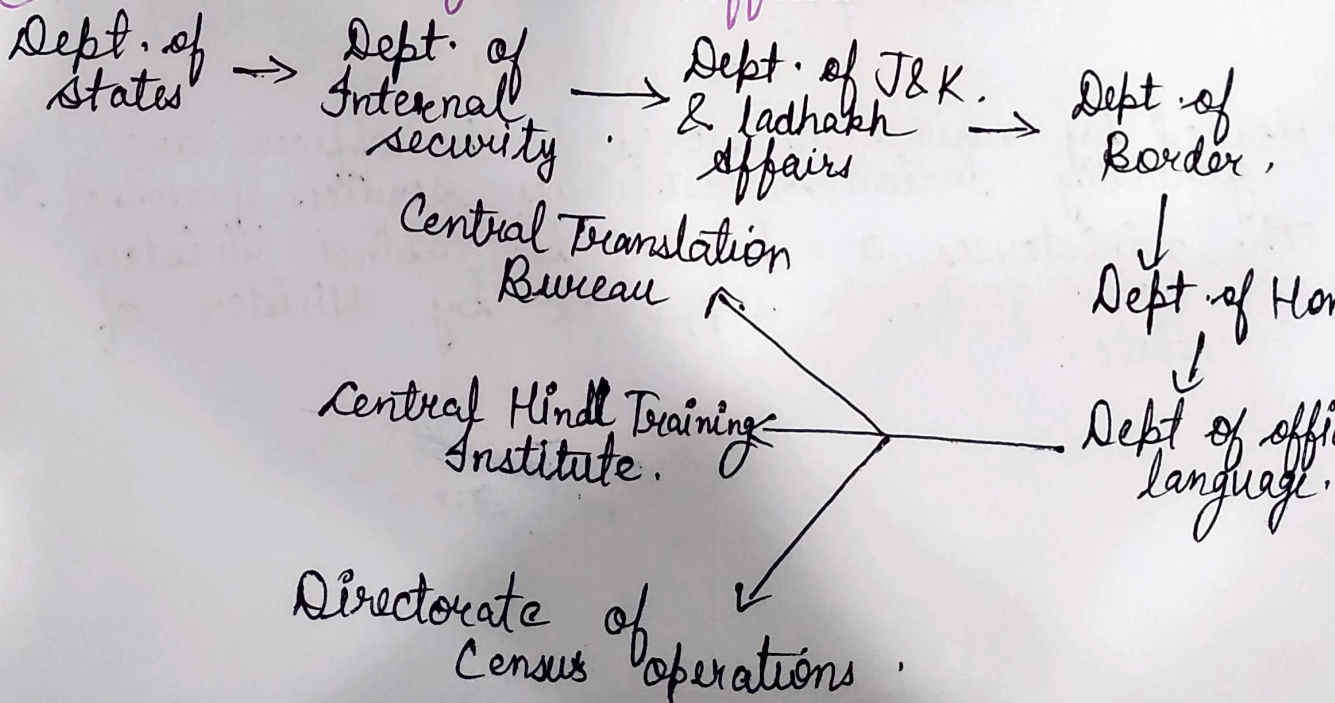 Dept. of
states
Dept. of
Internal
security.
Dept. of J&K.
& ladhakh
Affairs
Dept of
Border,
Dept. of
Dept of
language.
Central Translation
Bureau
Central Hindi Training
Institute.
Directorate of
Census operations.